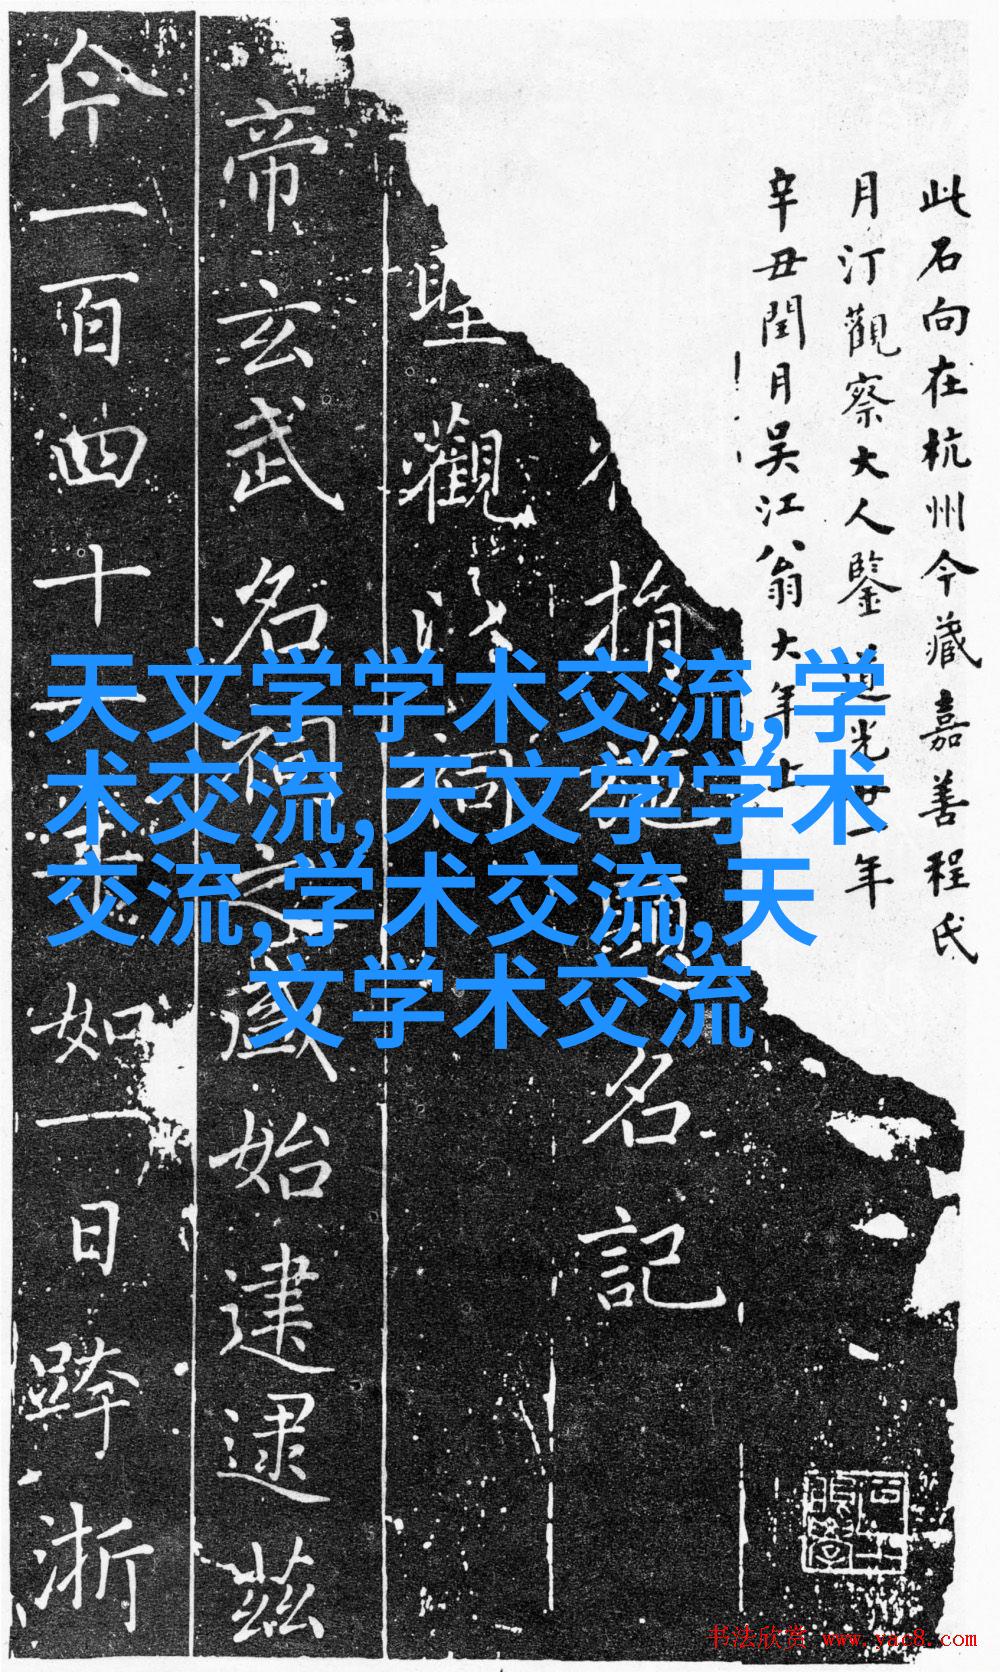 此石向在杭州今藏嘉善程氏
月汀觀察大人鑒道光廿一年
辛丑閏月吳江翁大年上
指施題名記
觀
帝玄武名祠之盛始建逮茲
一百四十年如一日蹕浙
天文学学术交流,学
术交流,天文学学术
交流,学术交流,天
文学术交流
书法欣赏 www.yac8.com